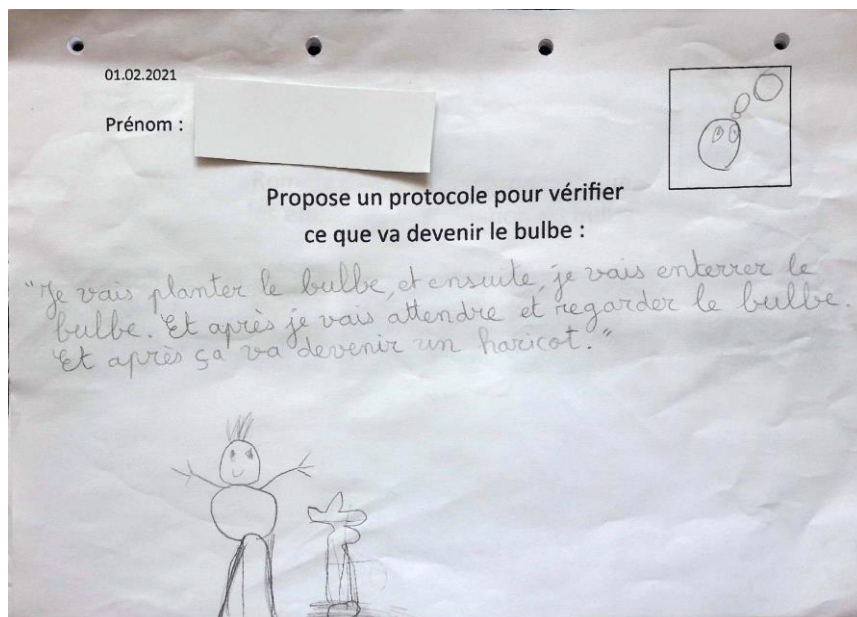 01.02.2021
Prénom :
Propose un protocole pour vérifier
ce que va devenir le bulbe :
"Je vais planter le bulbe, et ensuite, je vais enterrer le
bulbe. Et après je vais attendre et regarder le bulbe.
Et après ça va devenir un haricot."